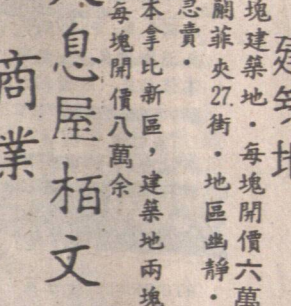 建築地
塊建築地・每塊開價六萬
蘭菲夾27.街・地區幽靜・
急賣・
本拿比新區，建築地兩塊
每塊開價八萬余
息屋栢文
商業